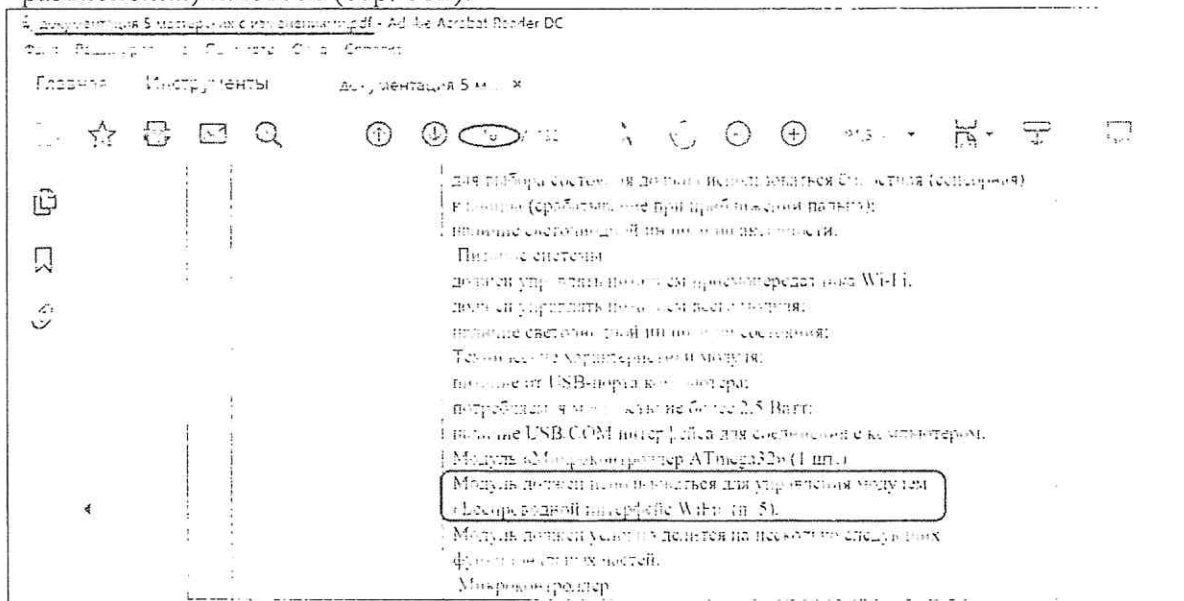 документация 5 мастерских с изменениями.pdf - Adobe Acrobat Reader DC
Главная Инструменты документация 5 м... ×
для выбора состояния должна использоваться бесконтактная (сенсорная)
клавиша (срабатывание при приближении пальца);
наличие светодиодной индикации активности.
Питание системы
должен управлять питанием приемопередатчика Wi-Fi.
должен управлять питанием всего модуля;
наличие светодиодной индикации состояния;
Технические характеристики модуля:
питание от USB-порта компьютера;
потребляемая мощностью не более 2.5 Ватт;
наличие USB/COM интерфейса для соединения с компьютером.
Модуль «Микроконтроллер ATmega32» (1 шт.)
Модуль должен использоваться для управления модулем
«Беспроводной интерфейс WiFi» (п. 5).
Модуль должен условно делится на несколько следующих
функциональных частей.
Микроконтроллер